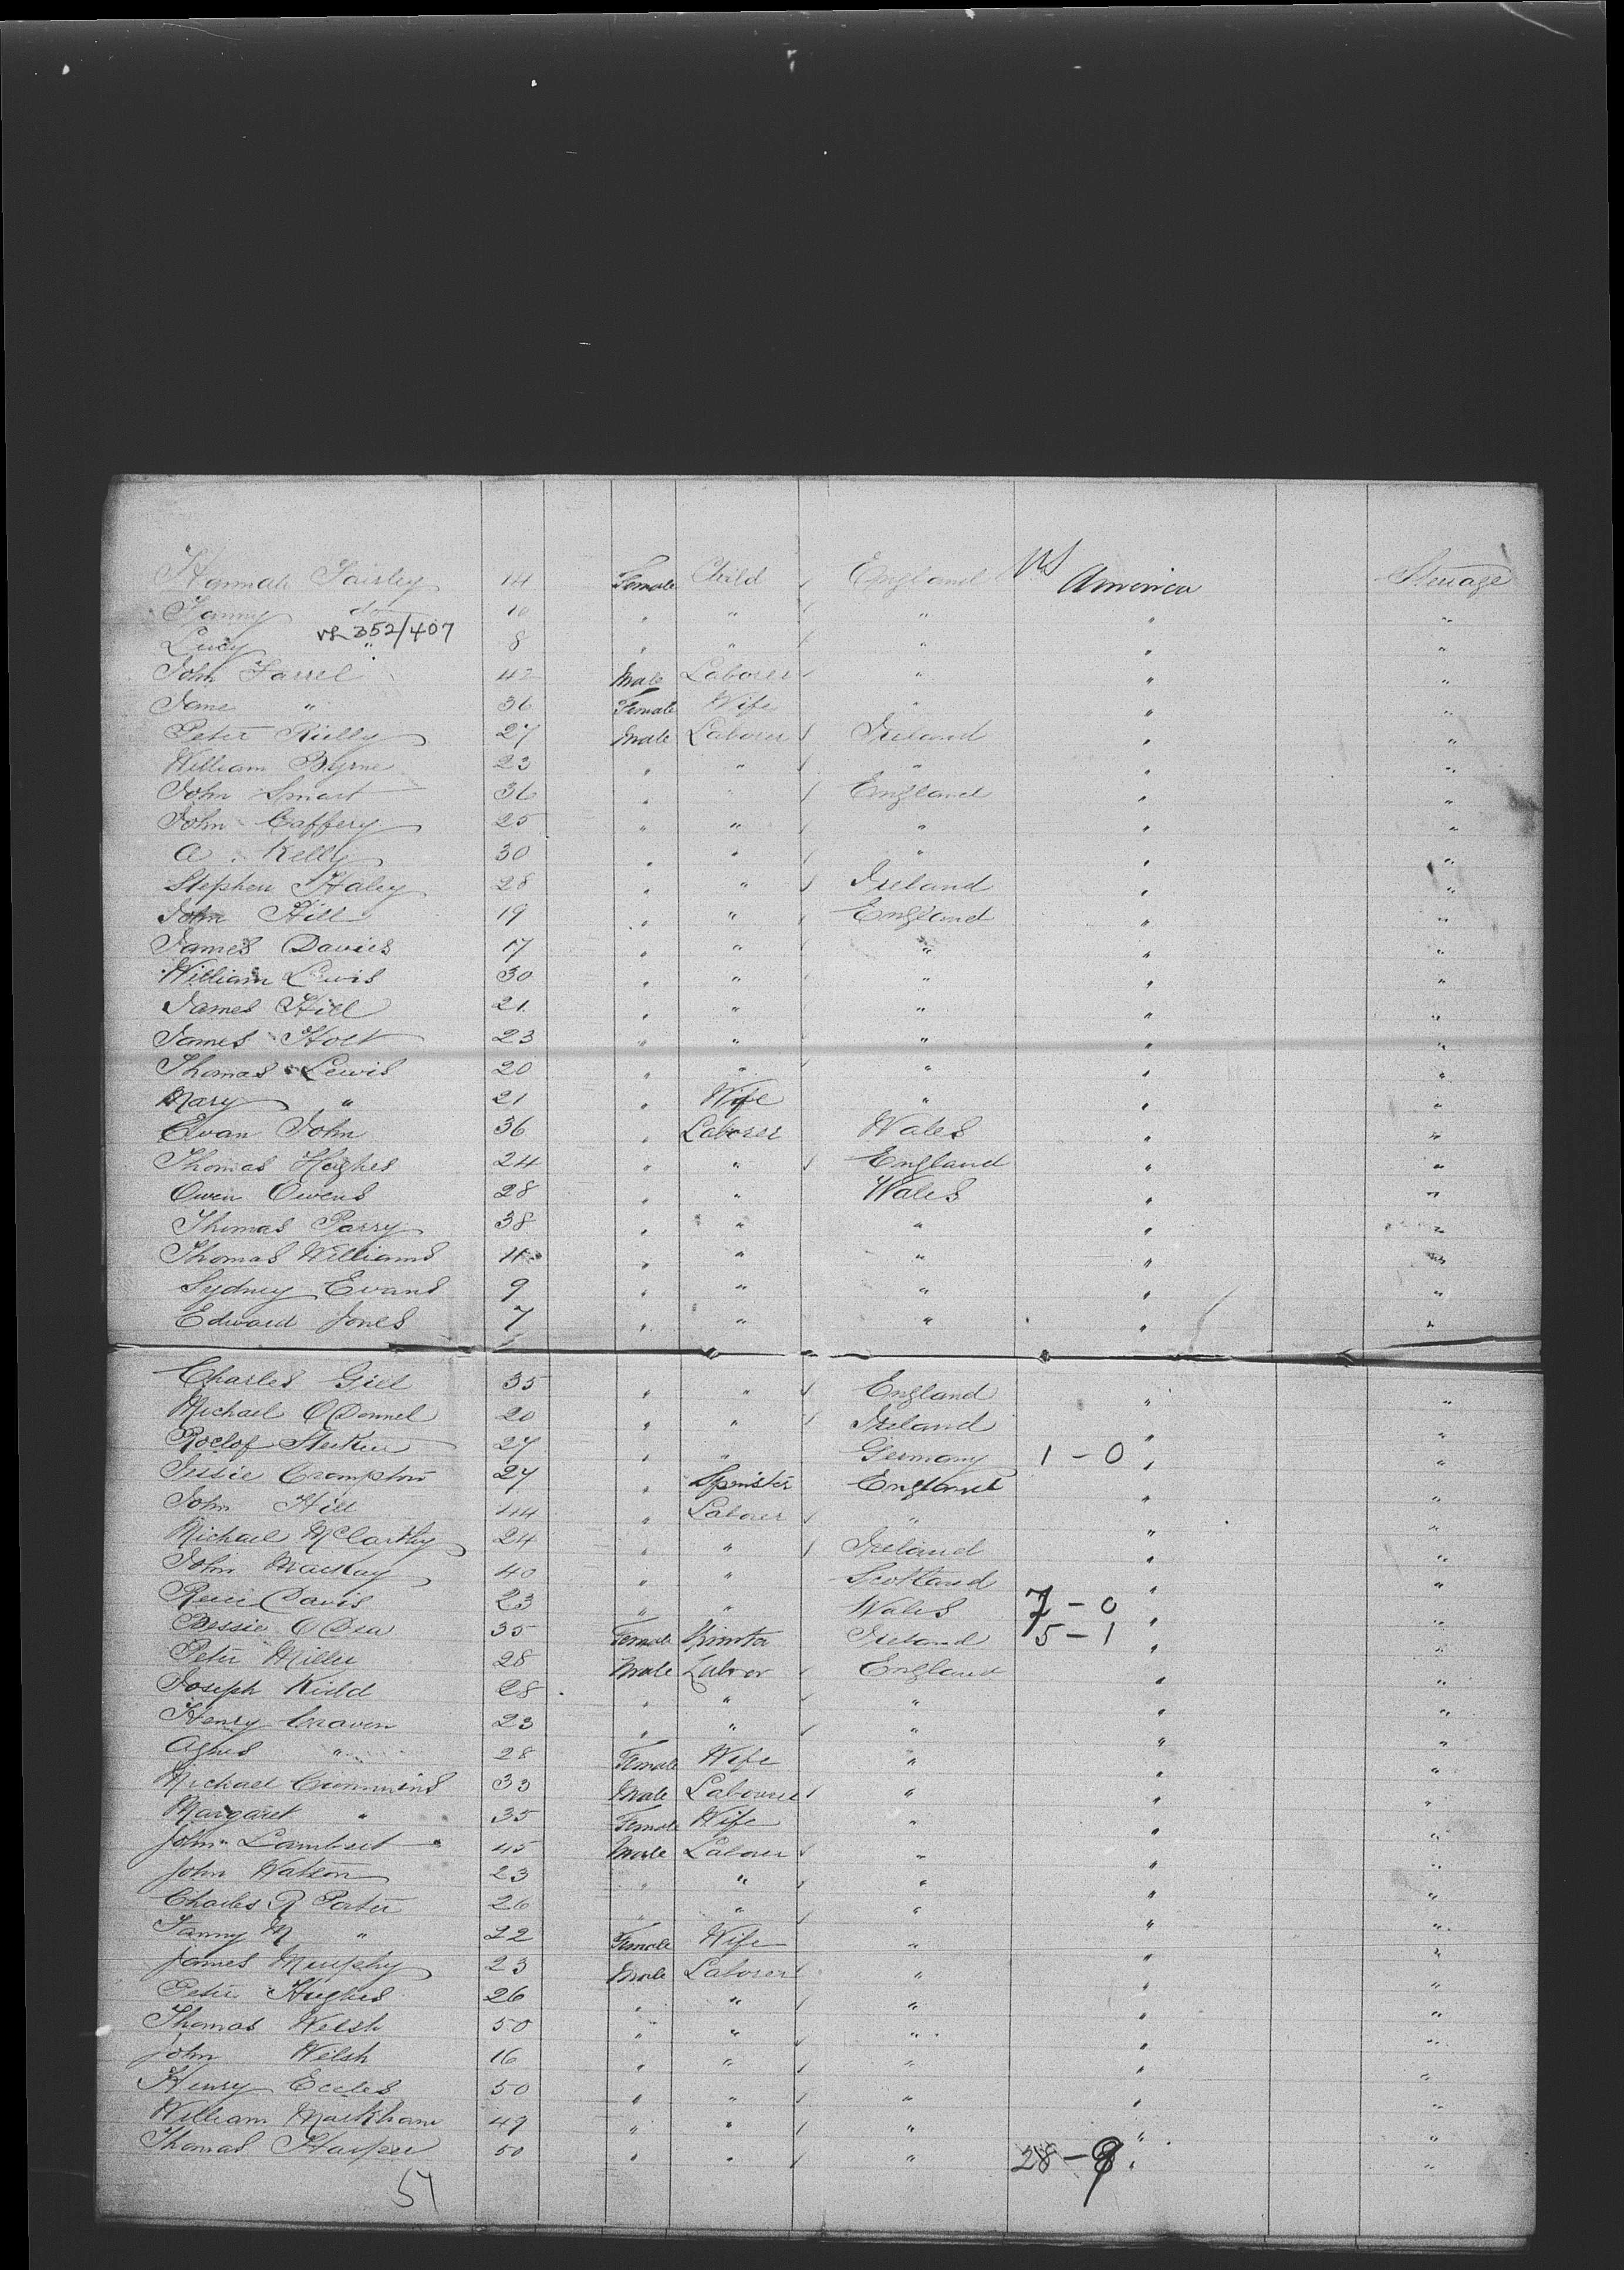 Hannah Fairley 14 Female Child England US America Steerage
Fanny do 10 " " " " "
vs 352/407
Lucy " 8 " " " " "
John Farrel 42 Male Laborer " " "
Jane " 36 Female Wife " " "
Peter Rielly 27 Male Laborer Ireland " "
William Byrne 23 " " " " "
John Smart 36 " " England " "
John Caffery 25 " " " " "
A. Kelly 30 " " " " "
Stephen Haley 28 " " Ireland " "
John Hill 19 " " England " "
James Davies 17 " " " " "
William Lewis 30 " " " " "
James Hill 21 " " " " "
James Holt 23 " " " " "
Thomas Lewis 20 " " " " "
Mary " 21 " Wife " " "
Evan John 36 " Laborer Wales " "
Thomas Hughes 24 " " England " "
Owen Owens 28 " " Wales " "
Thomas Parry 38 " " " " "
Thomas Williams 11 " " " " "
Sydney Evans 9 " " " " "
Edward Jones 7 " " " " "
Charles Gill 35 " " England " "
Michael O'Donnel 20 " " Ireland " "
Roelof 27 " " Germany 1 - 0 " "
Jessie Crompton 27 " Spinster England " "
John Hill 44 " Laborer " " "
Michael McCarthy 24 " " Ireland " "
John Mackay 40 " " Scotland " "
Davis 23 " " Wales 7 - 0 " "
Bessie O'Dea 35 Female Ireland 5 - 1 " "
Peter Miller 28 Male Labror England " "
Joseph Kidd 28 " " " " "
Henry Craven 23 " " " " "
Agnes " 28 Female Wife " " "
Michael Cummins 33 Male Labourer " " "
Margaret " 35 Female Wife " " "
John Lambert 45 Male Laborer " " "
John Watson 23 " " " " "
Charles R Porter 26 " " " " "
Fanny M " 22 Female Wife " " "
James Murphy 23 Male Laborer " " "
Peter Hughes 26 " " " " "
Thomas Welsh 50 " " " " "
John Welsh 16 " " " " "
Henry Eccles 50 " " " " "
William Markham 49 " " " " "
Thomas Harper 50 " " " 28 - 9 " "
51